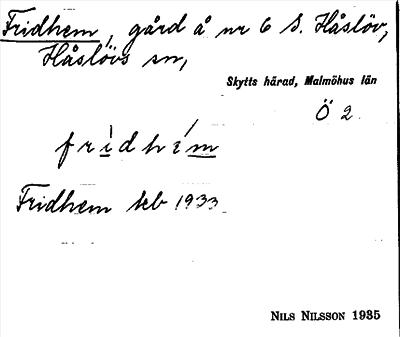 Fridhem, gård å nr 6 S. Håslöv,
Håslövs sn,
Skytts härad, Malmöhus län
Ö 2
fridhem
Fridhem teb 1933
NILS NILSSON 1935